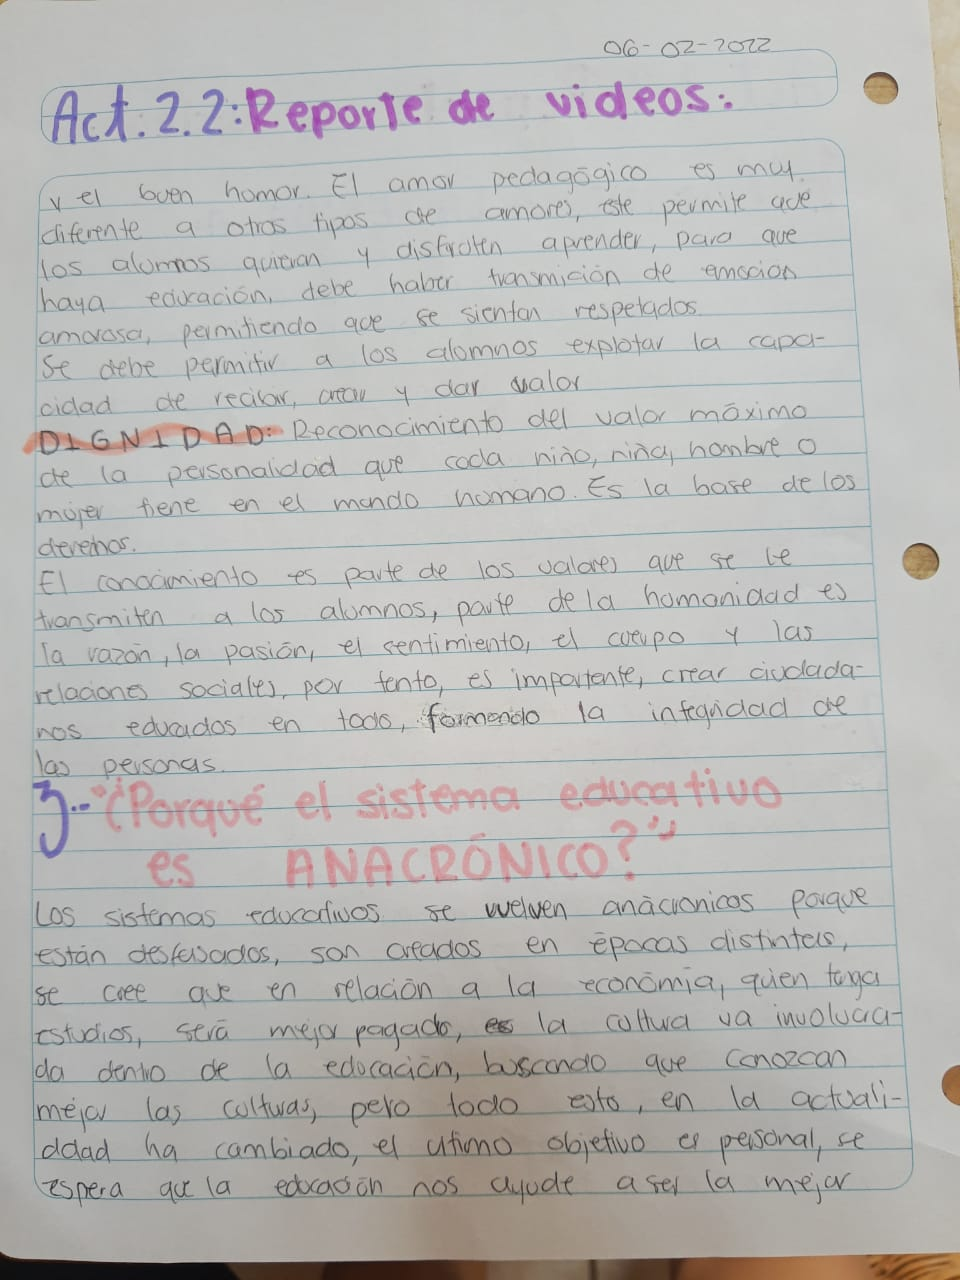 06-02-2022
Act. 2.2: Reporte de videos:
y el buen homor. El amor pedagógico es muy
diferente a otros tipos de amores, este permite que
los alumnos quieran y disfruten aprender, para que
haya educación, debe haber transmición de emocion
amorosa, permitiendo que se sientan respetados.
Se debe permitir a los alumnos explotar la capa-
cidad de recibir, crear y dar valor
DIGNIDAD: Reconocimiento del valor máximo
de la personalidad que cada niño, niña, hombre o
mujer tiene en el mundo humano. Es la base de los
derechos.
El conocimiento es parte de los valores que se le
transmiten a los alumnos, parte de la humanidad es
la razón, la pasión, el sentimiento, el cuerpo y las
relaciones sociales, por tento, es importante, crear ciudada-
nos educados en todo, formendo la integridad de
las personas.
3.- "¿Porqué el sistema educativo
es ANACRÓNICO?"
Los sistemas educativos se vuelven anácronicos porque
están desfasados, son creados en épocas distintas,
se cree que en relación a la economía, quien tenga
estudios, será mejor pagado, la cultura va involucra-
da dentro de la educación, buscando que conozcan
mejor las culturas, pero todo esto, en la actuali-
ddad ha cambiado, el ultimo objetivo es personal, se
espera que la educación nos ayude a ser la mejor